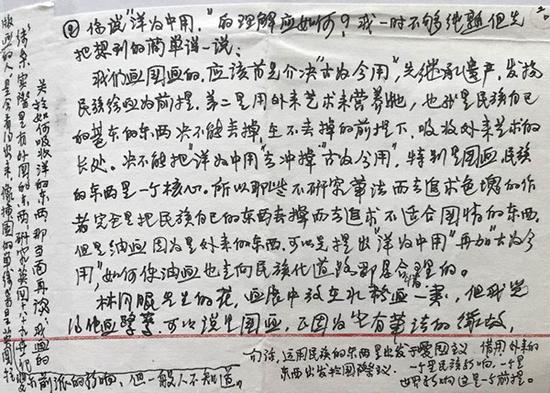 ②你说"洋为中用,"的理解应如何?我一时不够纯熟但先
把想到的简单谈一谈:
我们画国画的,应该首先介决"古为今用",先继承遗产,发扬
民族绘画为前提。第二是用外来艺术来营养她,也就是民族自己
的基本的东西决不能丢掉在不丢掉的前提下,吸收外来艺术的
长处。决不能把"洋为中用"去冲掉"古为今用",特别是国画,民族
的东西是一个核心。所以那些不研究笔法而去追求色块的作
者完全是把民族自己的东西丢掉而去追求不适合国情的东西,
但是油画因为是外来的东西,可以先提出"洋为中用"再加"古为今
用",如何使油画也走向民族化道路那是合理的。
林风眠先生的花,画展中放在水粉画一类,但我觉
得他画 可以说是国画,正因为它有笔法的缘故,
句话,运用民族的东西是出发于爱国主义 借用外来的
东西出发于国际主义。一个是民族影响,一个是
世界影响这是一个前提。
关于如何吸收洋的东西那当面再谈,我画的
实际里有外国的东西研究英国
版画的人是会看得出来,像横图的 是英国
前派的影响,但一般人不知道。